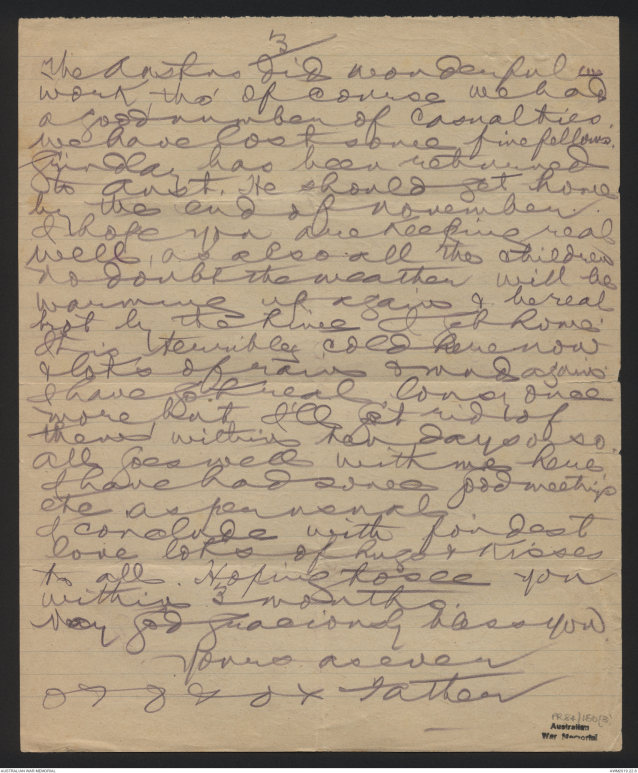 3
The Austrns did wonderful
work, tho' of course we had
a good number of casualties.
We have lost some fine fellows.
Findlay has been returned
to Aust. He should get home
by the end of November.
I hope you are keeping real
well, as also all the children
No doubt the weather will be
warming up again & be real
hot by the time I get home.
It is terribly cold here now
& lots of rain & mud again.
I have got real once
more but I'll get rid of
them within ten days or so.
All goes well with me here
I have had some good meetings
etc as per usual.
I conclude with fondest
love lots of hugs & kisses
to all. Hoping to see you
within 3 months.
May God graciously bless you
Yours as ever
Father
PR84/150(3)
Australian
War Memorial
AUSTRALIAN WAR MEMORIAL